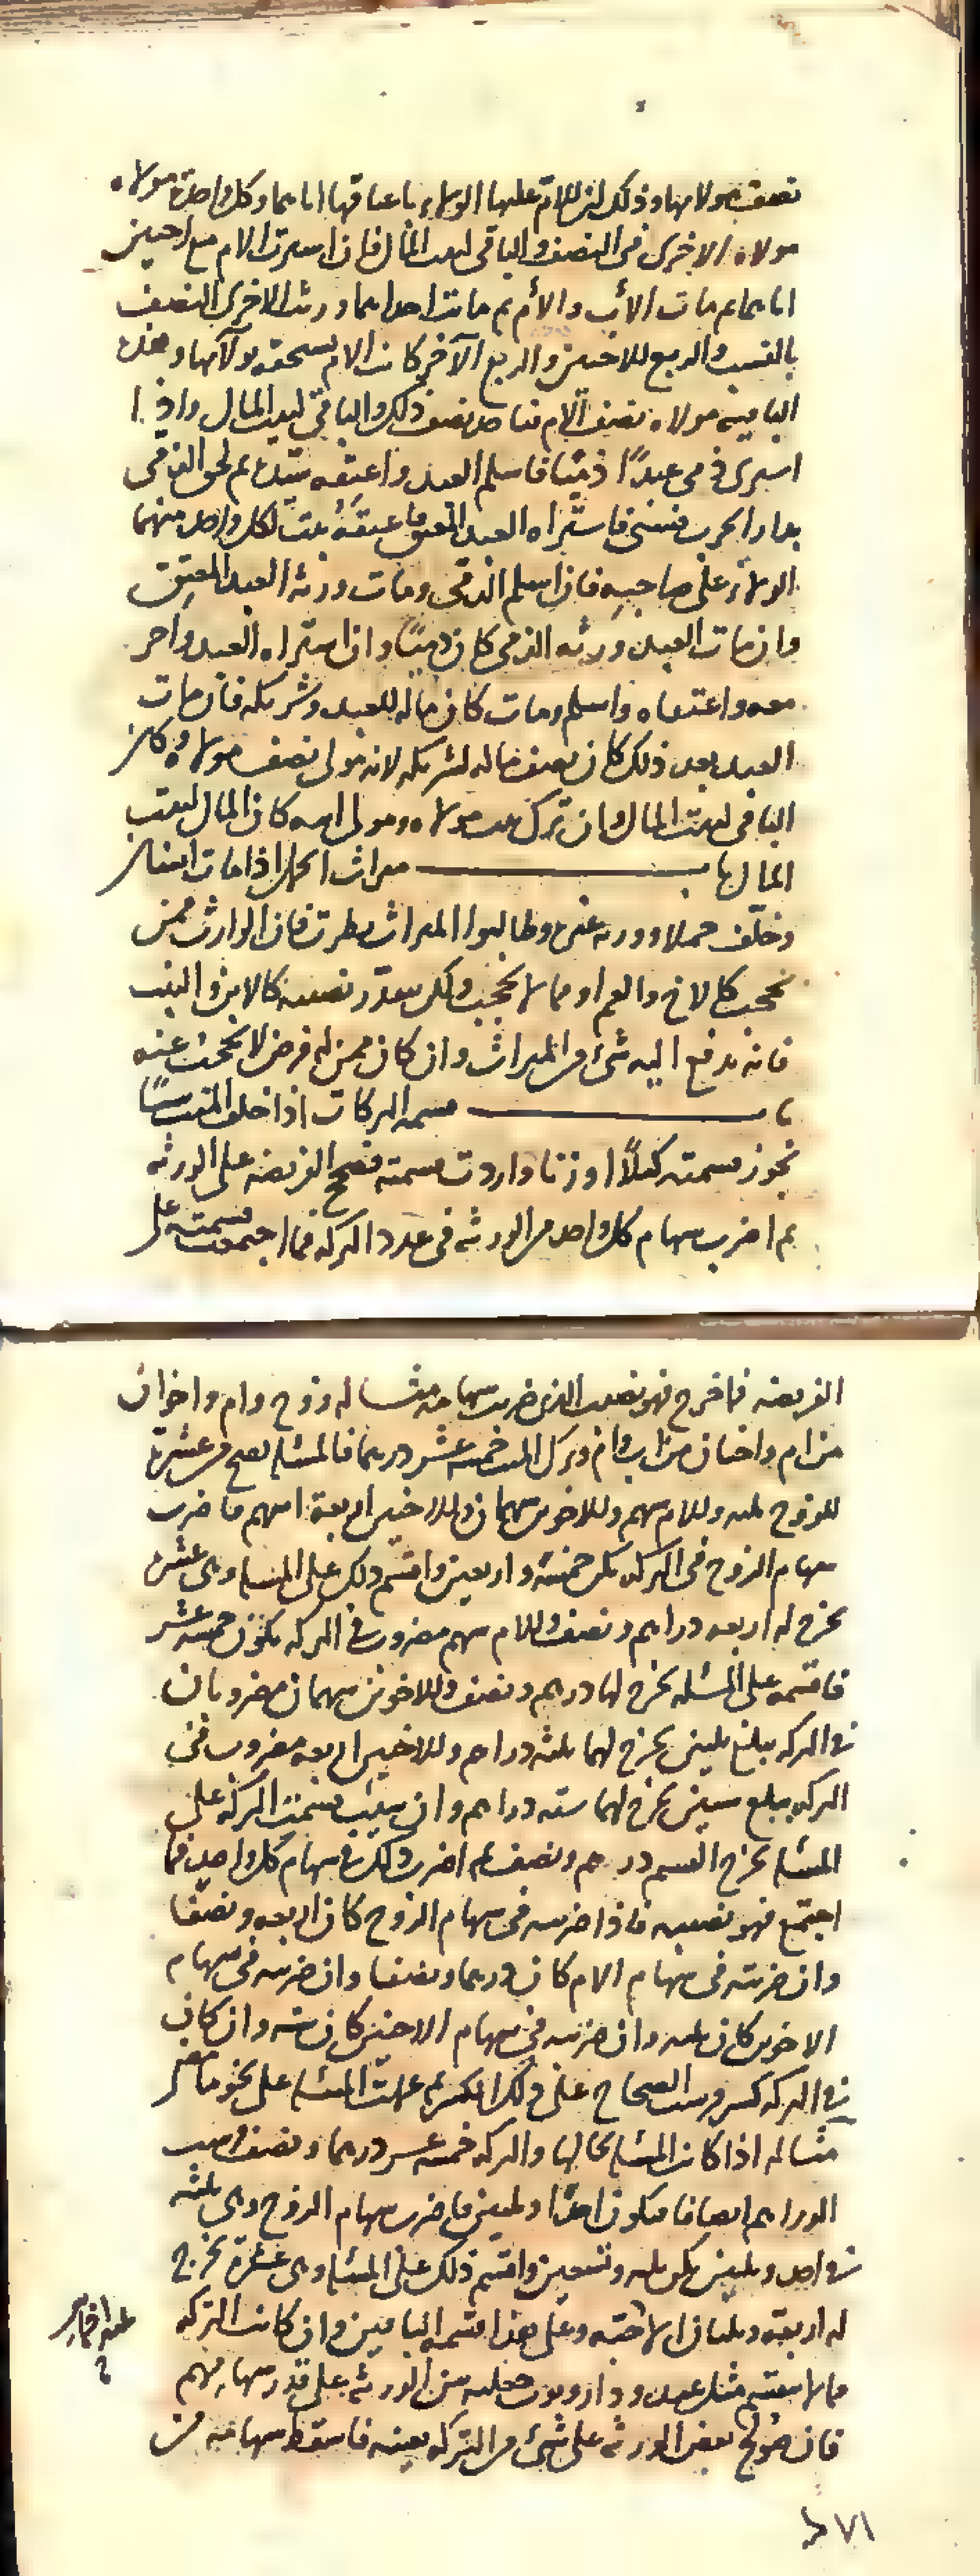 نصف مولاتها وذلك لان للام عليها الولاء باعتاقها اباهما وكل واحدة مولاة
مولاة الاخرى في النصف والباقي لبيت المال فان اشترت الام مع احدى
اباهما ثم مات الأب والأم ثم ماتت احداهما ورثت الاخرى النصف
بالنسب والربع للاختين والربع الآخر كانت الام تستحقه بولائها
الباقية مولاة نصف الأم نصف ذلك والباقي لبيت المال واذا
اشترى ذمي عبدًا ذميًا فاسلم العبد واعتقه سيده ثم لحق الذمي
بدار الحرب فسبي فاشتراه العبد المعتق فاعتقه ثبت لكل واحد منهما
الولاء على صاحبه فان اسلم الذمي ومات ورثه العبد المعتق
وان مات العبد ورثه الذمي كان ذميًا وان اشتراه العبد واخر
معه واعتقاه واسلم ومات كان ماله للعبد وشريكه فان مات
العبد بعد ذلك كان نصف ماله لشريكه لانه مولى نصف مولاه وكان
الباقي لبيت المال وان ترك بنت مولاه ومولى ابيه كان المال لبيت
المال باب ميراث الحمل اذا مات انسان
وخلف حملا وورثة غيره وطالبوا الميراث نظرت فان الوارث ممن
يحجب كالاخ والعم او مما لا يحجب ولكن يتقدر نصيبه كالابن والبنت
فانه يدفع اليه شئ من الميراث وان كان ممن له فرض لا يحجب عنه
باب قسمة التركات اذا خلف الميت شيئًا
تجوز قسمته كيلاً او وزنا واردت قسمته فصحح الفريضة على الورثة
ثم اضرب سهام كل واحد من الورثة في عدد التركة فما اجتمعت قسمته على
الفريضة فما خرج فهو نصيب الذي ضربت سهامه مثاله زوج وام واخوان
من ام واختان من اب وام وترك الميت خمسة عشر درهما فالمسئلة تصح من عشرة
للزوج ثلثة وللام سهم وللاخوين سهمان وللاختين اربعة اسهم فاضرب
سهام الزوج في التركة تكن خمسة واربعين واقسم ذلك على المسئلة وهي عشرة
يخرج له اربعة دراهم ونصف وللام سهم مضروب في التركة يكون خمسة عشر
فاقسمه على المسئلة يخرج لها درهم ونصف وللاخوين سهمان مضروبان
في التركة يبلغ ثلثين يخرج لهما ثلثة دراهم وللاختين اربعة مضروب في
التركة يبلغ ستين يخرج لهما ستة دراهم وان شئت قسمت التركة على
المسئلة يخرج القسم درهم ونصف ثم اضرب ذلك في سهام كل واحد فما
اجتمع فهو نصيبه فاذا ضربته في سهام الزوج كان اربعة ونصفا
وان ضربته في سهام الام كان درهما ونصفا وان ضربته في سهام
الاخوين كان ثلثة وان ضربته في سهام الاختين كان ستة وان كان
في التركة كسر بسطت الصحاح على ذلك الكسر ثم عملت المسئلة على نحو ما مضى
مثاله اذا كانت المسئلة بحالها والتركة خمسة عشر درهما ونصف
الدراهم انصافا فيكون احدًا وثلثين فاضرب سهام الزوج وهي ثلثة
في احد وثلثين يكن ثلثة وتسعين واقسم ذلك على المسئلة وهي عشرة يخرج
له اربعة وعلى هذا قسمة الباقين وان كانت التركة
مما لا ينقسم مثل عبد ودار وثوب جعلته من الورثة على قدر سهامهم
فان صولح بعض الورثة على شئ من التركة بعينه فاسقط سهامه من
٧١